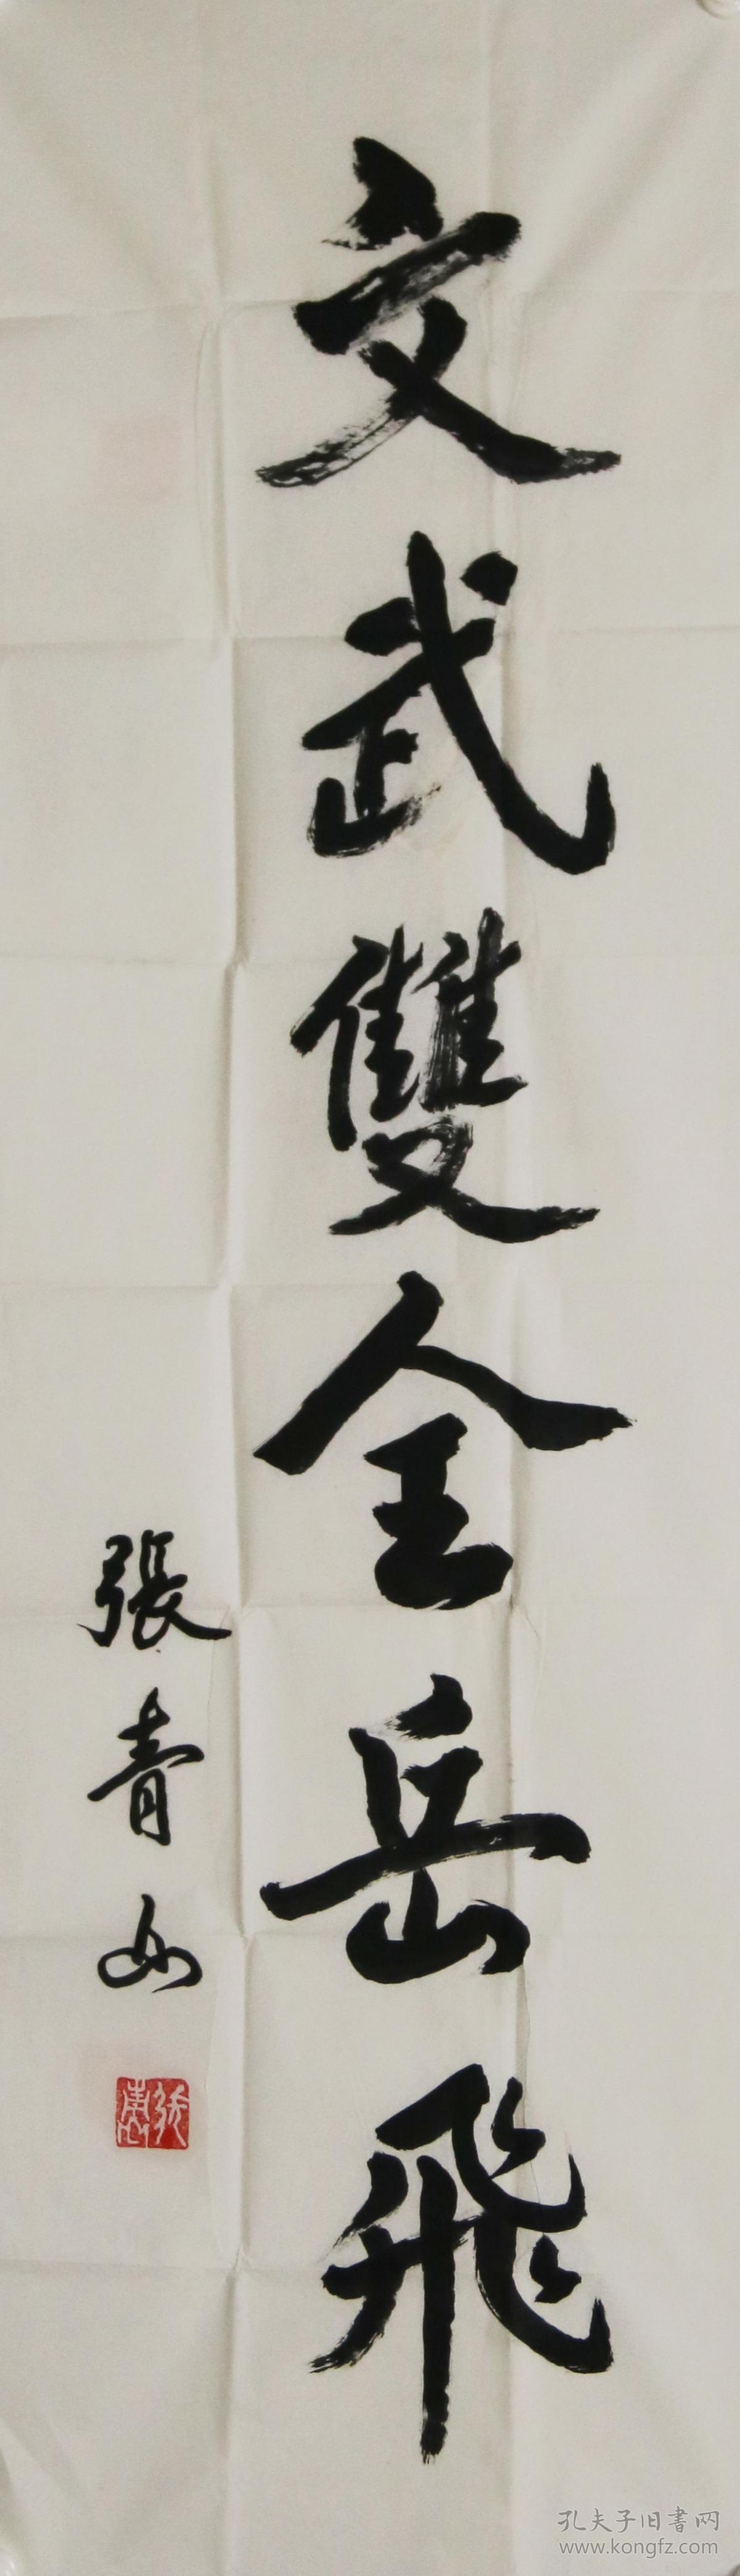 文武雙全岳飛
張青山
孔夫子旧書网
www.kongfz.com